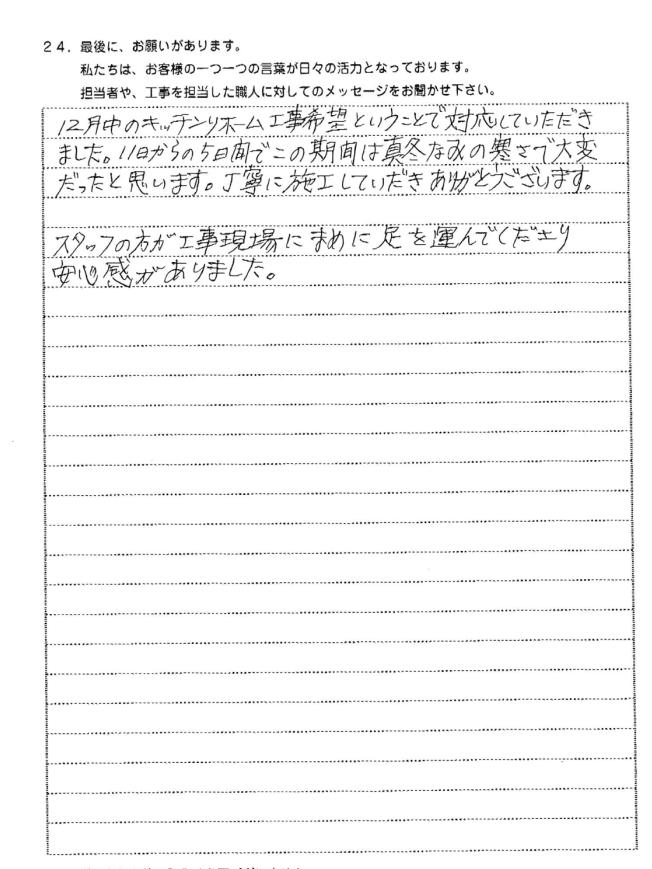 24．最後に、お願いがあります。
私たちは、お客様の一つ一つの言葉が日々の活力となっております。
担当者や、工事を担当した職人に対してのメッセージをお聞かせ下さい。
12月中のキッチンリホーム工事希望ということで対応していただき
ました。11日からの5日間でこの期間は真冬なみの寒さで大変
だったと思います。丁寧に施工していだきありがとうございます。
スタッフの方が工事現場にまめに足を運んでくださり
安心感がありました。